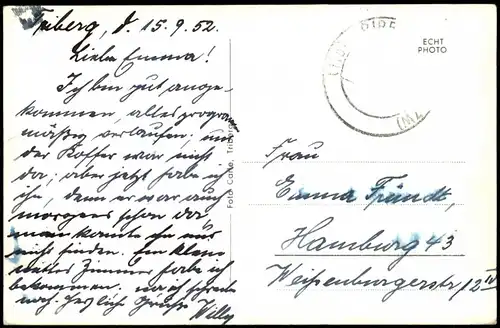 Triberg, d. 15.9.52.
Liebe Emma!
Ich bin gut ange-
kommen, alles program
mäßig verlaufen; nur
der Koffer war nicht
da; aber jetzt habe ich
ihn, denn er war auch
morgens schon da,
man konnte ihn nur
nicht finden. Ein klein
nettes Zimmer habe ich
bekommen.
noch. Herzliche Grüße Willy
Foto Carle, Triberg
ECHT
PHOTO
Frau
Emma Fründt,
Hamburg 43
Weißenburgerstr. 12 IV